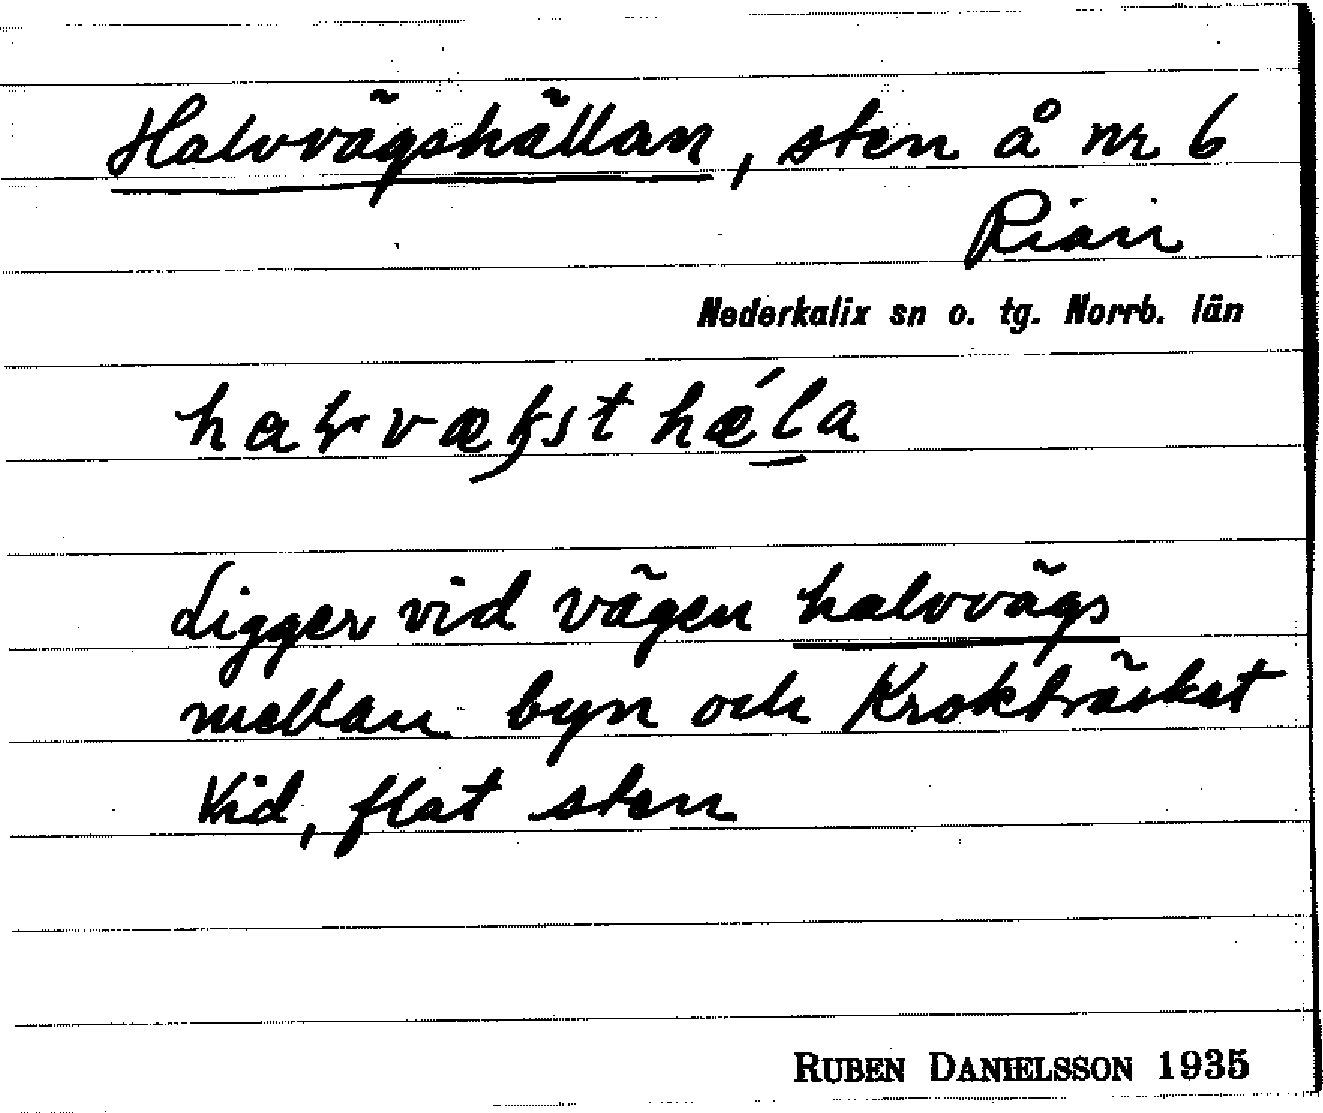 Halvvägshällan, sten å nr 6
Rian
Nederkalix sn o. tg. Norrb. län
Ligger vid vägen halvvägs
mellan byn och Krokträsket
Vid, flat sten
RUBEN DANIELSSON 1935